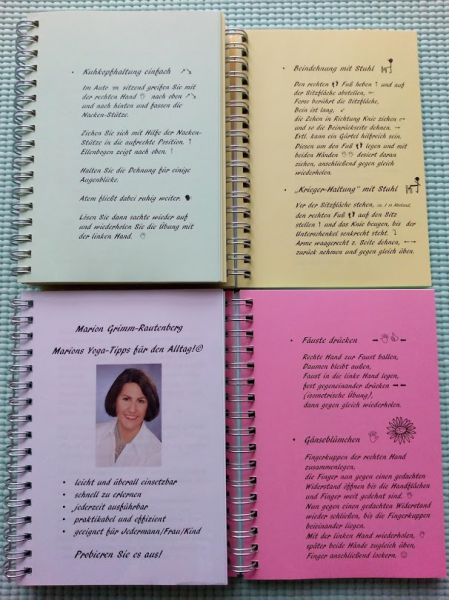 • Kuhkopfhaltung einfach
Im Auto sitzend greifen Sie mit
der rechten Hand nach oben
und nach hinten und fassen die
Nacken-Stütze.
Ziehen Sie sich mit Hilfe der Nacken-
Stütze in die aufrechte Position,
Ellenbogen zeigt nach oben.
Halten Sie die Dehnung für einige
Augenblicke.
Atem fließt dabei ruhig weiter.
Lösen Sie dann sachte wieder auf
und wiederholen Sie die Übung mit
der linken Hand.
• Beindehnung mit Stuhl
Den rechten Fuß heben und auf
der Sitzfläche abstellen,
Ferse berührt die Sitzfläche,
Bein ist lang,
die Zehen in Richtung Knie ziehen
und so die Beinrückseite dehnen.
Evtl. kann ein Gürtel hilfreich sein.
Diesen um den Fuß legen und mit
beiden Händen daran
ziehen, anschließend gegen gleich
wiederholen.
• „Krieger-Haltung" mit Stuhl
Vor der Sitzfläche stehen, ca. 1 m Abstand,
den rechten Fuß auf den Sitz
stellen und das Knie beugen, bis der
Unterschenkel senkrecht steht.
Arme waagerecht z. Seite dehnen,
zurück nehmen und gegen gleich üben.
Marion Grimm-Rautenberg
Marions Yoga-Tipps für den Alltag!©
• leicht und überall einsetzbar
• schnell zu erlernen
• jederzeit ausführbar
• praktikabel und effizient
• geeignet für Jedermann/Frau/Kind
Probieren Sie es aus!
• Fäuste drücken
Rechte Hand zur Faust ballen,
Daumen bleibt außen,
Faust in die linke Hand legen,
fest gegeneinander drücken
(isometrische Übung),
dann gegen gleich wiederholen.
• Gänseblümchen
Fingerkuppen der rechten Hand
zusammenlegen,
die Finger nun gegen einen gedachten
Widerstand öffnen bis die Handflächen
und Finger weit gedehnt sind.
Nun gegen einen gedachten Widerstand
wieder schließen, bis die Fingerkuppen
beieinander liegen.
Mit der linken Hand wiederholen,
später beide Hände zugleich üben,
Finger anschließend lockern. ☺